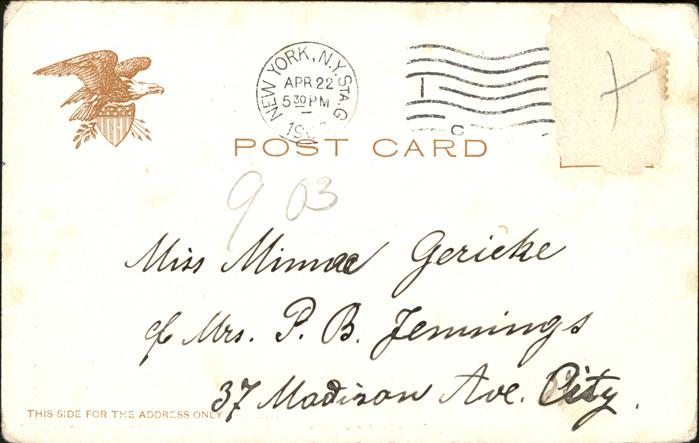 NEW YORK, N.Y. STA. G
APR 22
5 30 PM
C
POST CARD
903
Miss Minnae Gericke
c/o Mrs. P. B. Jennings
37 Madison Ave. City.
THIS SIDE FOR THE ADDRESS ONLY